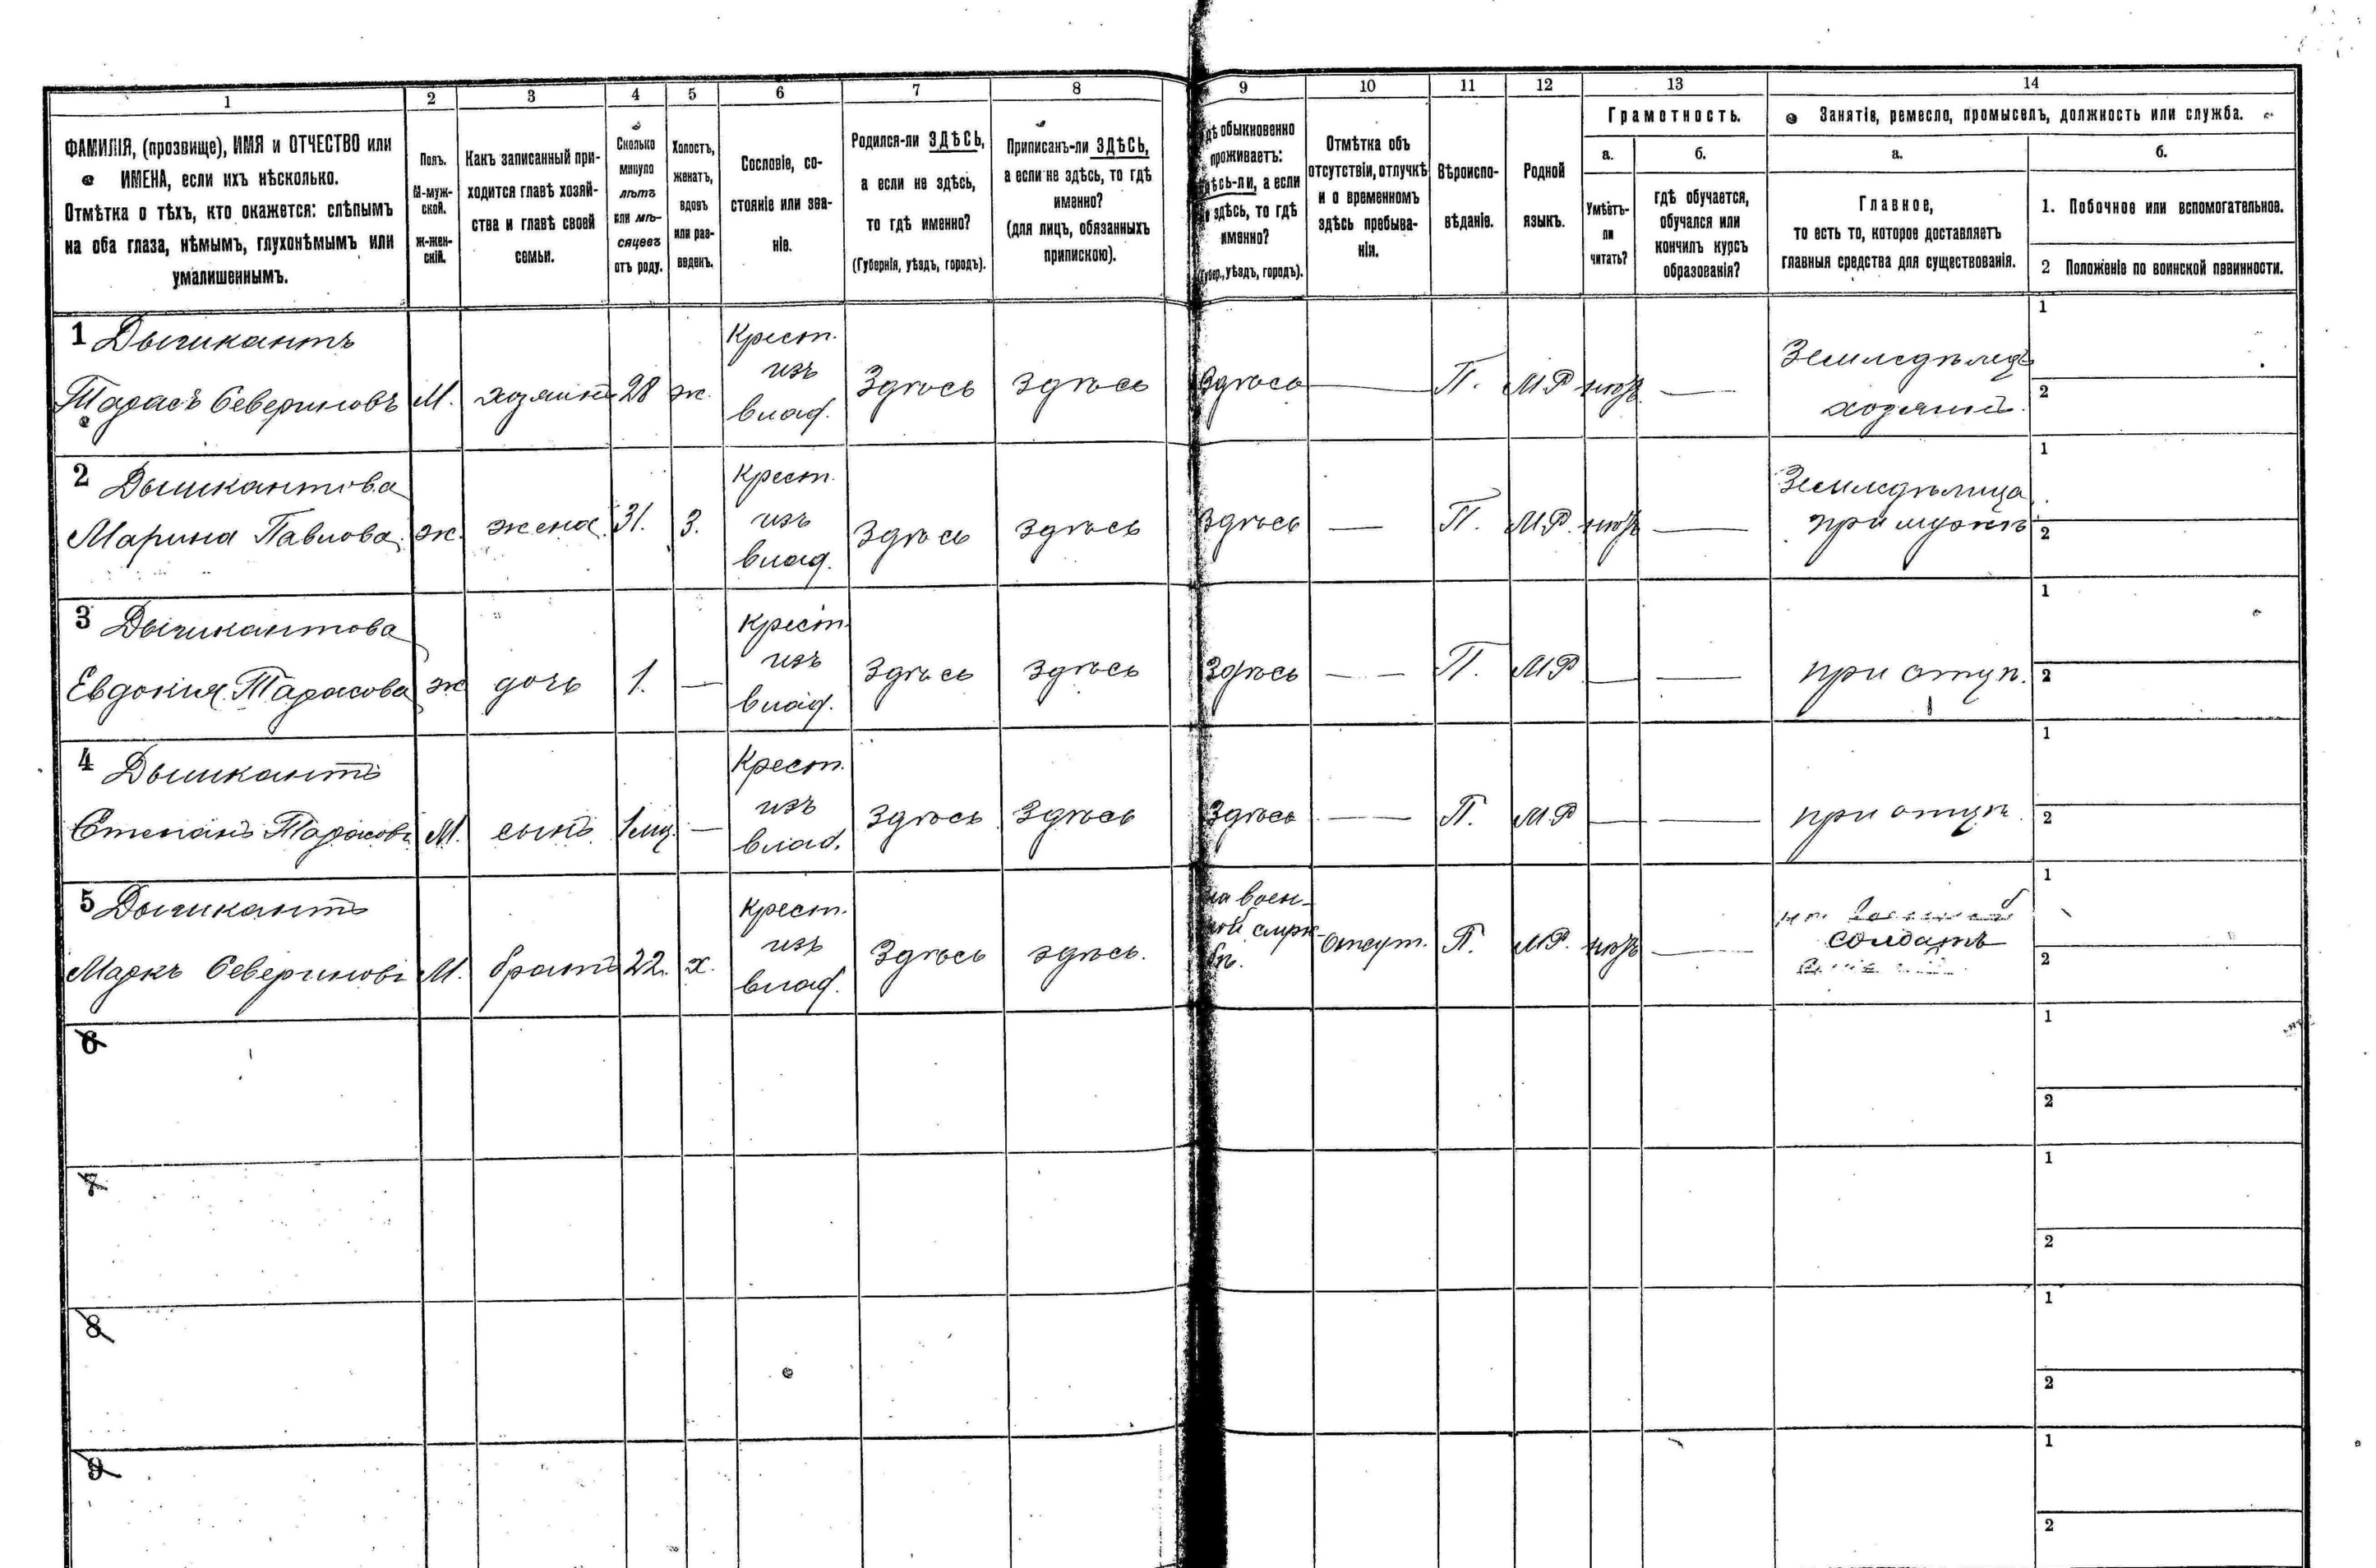 1 2 3 4 5 6 7 8 9 10 11 12 13 14
ФАМИЛІЯ, (прозвище), ИМЯ и ОТЧЕСТВО или
ИМЕНА, если ихъ нѣсколько.
Отмѣтка о тѣхъ, кто окажется: слѣпымъ
на оба глаза, нѣмымъ, глухонѣмымъ или
умалишеннымъ.
Полъ.
М-муж-
ской.
Ж-жен-
скій.
Какъ записанный при-
ходится главѣ хозяй-
ства и главѣ своей
семьи.
Сколько
минуло
лѣтъ
или мѣ-
сяцевъ
отъ роду.
Холостъ,
женатъ,
вдовъ
или раз-
веденъ.
Сословіе, со-
стояніе или зва-
ніе.
Родился-ли ЗДѢСЬ,
а если не здѣсь,
то гдѣ именно?
(Губернія, уѣздъ, городъ).
Приписанъ-ли ЗДѢСЬ,
а если не здѣсь, то гдѣ
именно?
(для лицъ, обязанныхъ
припискою).
Гдѣ обыкновенно
проживаетъ:
здѣсь-ли, а если
не здѣсь, то гдѣ
именно?
(Губер., уѣздъ, городъ).
Отмѣтка объ
отсутствіи, отлучкѣ
и о временномъ
здѣсь пребыва-
ніи.
Вѣроиспо-
вѣданіе.
Родной
языкъ.
Грамотность.
а.
Умѣетъ-
ли
читать?
б.
гдѣ обучается,
обучался или
кончилъ курсъ
образованія?
Занятіе, ремесло, промыселъ, должность или служба.
а.
Главное,
то есть то, которое доставляетъ
главныя средства для существованія.
б.
1. Побочное или вспомогательное.
2 Положеніе по воинской повинности.
1 Дычкантъ
Тарасъ Севериновъ М. хозяинъ 28 ж. Крест. изъ влад. Здѣсь здѣсь Здѣсь — П. МР нѣтъ — Земледѣлецъ хозяинъ. 1 2
2 Дычкантова
Марина Павлова ж. жена 31. З. Крест. изъ влад. Здѣсь здѣсь Здѣсь — П. МР. нѣтъ — Земледѣлица при мужѣ 1 2
3 Дычкантова
Евдокия Тарасова ж дочь 1. — Крест. изъ влад. Здѣсь здѣсь Здѣсь — — П. МР — — при отцѣ. 1 2
4 Дычкантъ
Степанъ Тарасовъ М. сынъ 1 мц. — Крест. изъ влад. Здѣсь Здѣсь Здѣсь — — П. МР — — при отцѣ. 1 2
5 Дычкантъ
Маркъ Севериновъ М. братъ 22. х. Крест. изъ влад. Здѣсь здѣсь. на воен-ной служ-бѣ. отсут. П. МР. нѣтъ — солдатъ 1 2
6 1 2
7 1 2
8 1 2
9 1 2